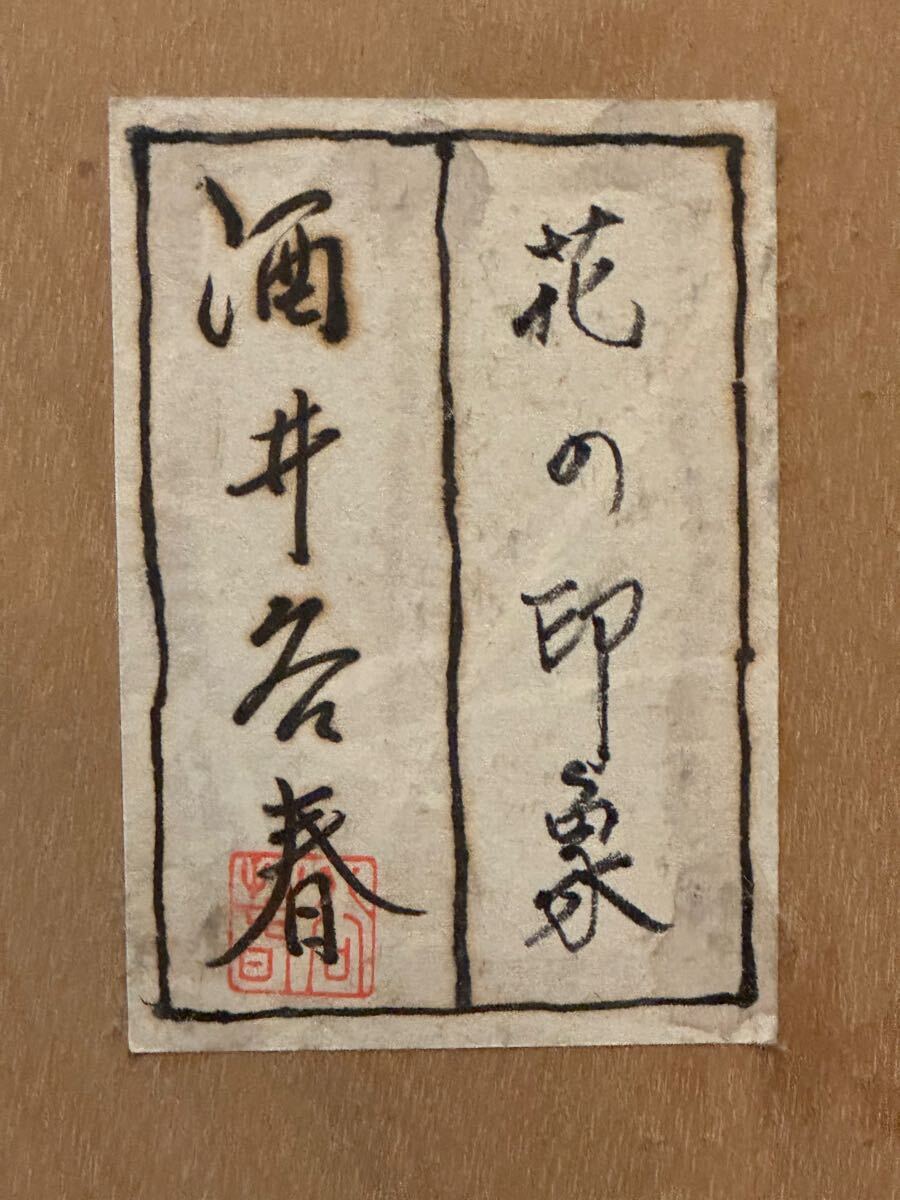 花の印象
酒井谷春